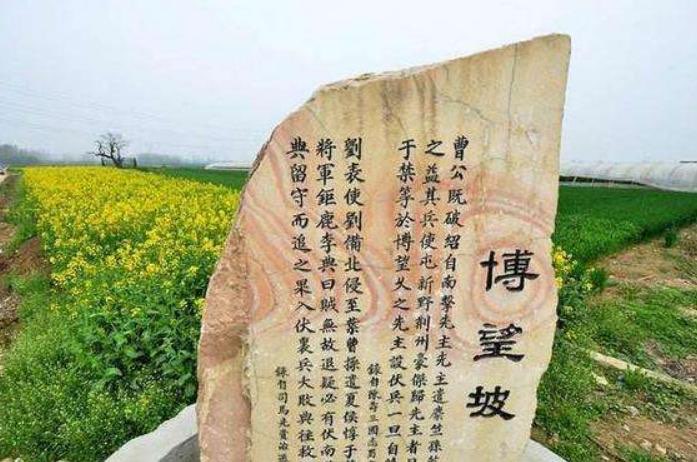 博望坡
曹公既破紹自南擊先主先主遣麋竺孫
之益其兵使屯新野荊州豪傑歸先主者日
于禁等於博望久之先主設伏兵一旦自
錄自陳壽三國志蜀
劉表使劉備北侵至葉曹操遣夏侯惇于
將軍鉅鹿李典曰賊無故退疑必有伏南
典留守而追之果入伏裏兵大敗典往救
錄自司馬光資治通